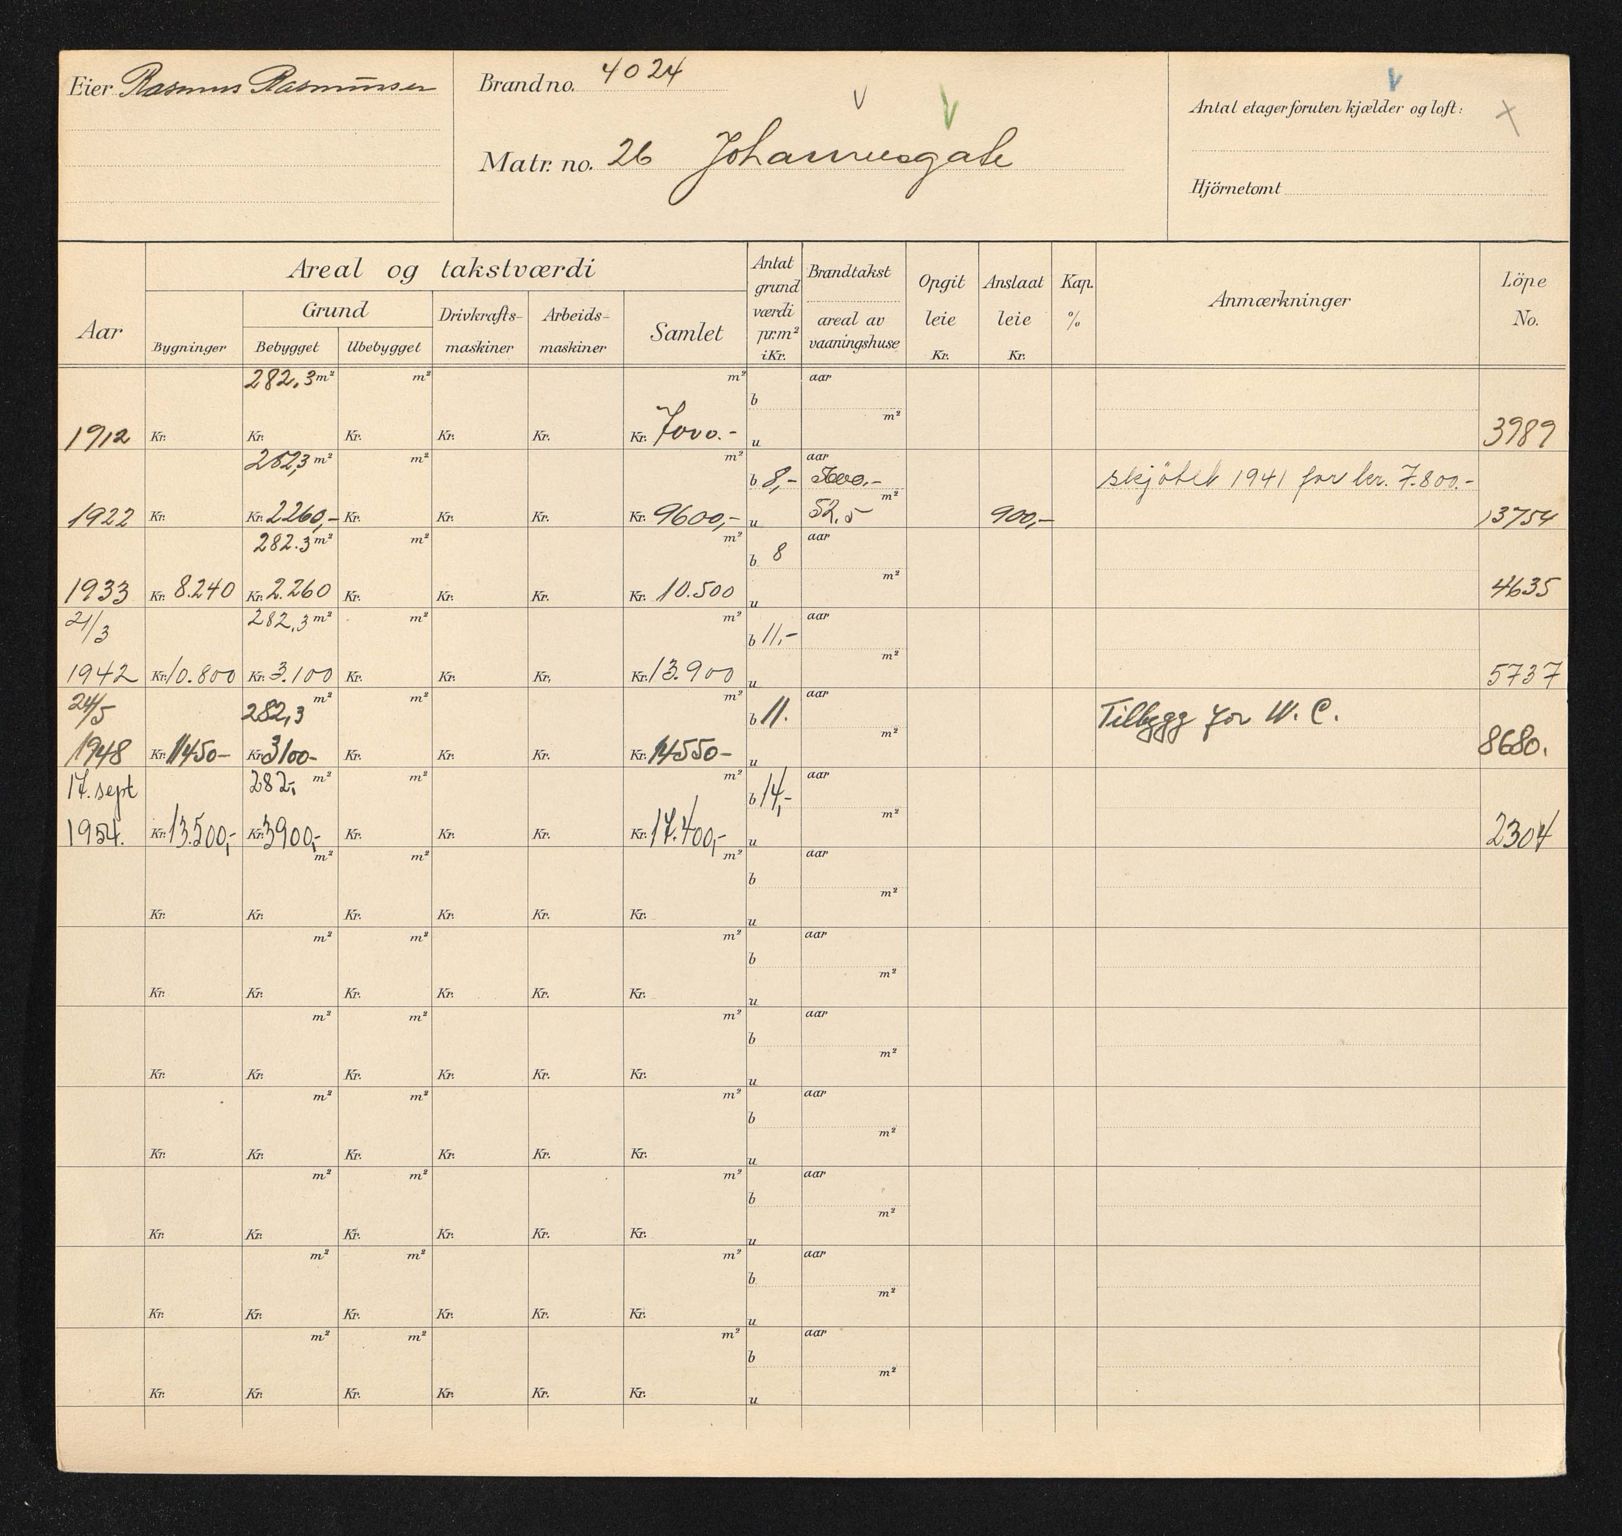 Eier Rasmus Rasmussen
Brandno. 4024
Matr. no. 26 Johannesgate
Antal etager foruten kjælder og loft:
Hjörnetomt
Aar
Areal og takstværdi
Bygninger
Grund
Bebygget Ubebygget
Drivkrafts-
maskiner
Arbeids-
maskiner
Samlet
Antat
grund
værdi
pr.m²
i Kr.
Brandtakst
areal av
vaaningshuse
Opgit
leie
Kr.
Anslaat
leie
Kr.
Kap.
%
Anmærkninger
Löpe
No.
282,3 m² m² m² aar
b m²
1912 Kr. Kr. Kr. Kr. Kr. Kr. 7000.- u 3989
282,3 m² m² m² aar
b 8,- m² skjötet 1941 for kr. 7.800.-
1922 Kr. Kr. 2260,- Kr. Kr. Kr. Kr. 9600,- u 52,5 900,- 13754
282.3 m² m² m² aar
b 8 m²
1933 Kr. 8.240 Kr. 2.260 Kr. Kr. Kr. Kr. 10.500 u 4635
21/3 282,3 m² m² m² aar
b 11,- m²
1942 Kr. 10.800 Kr. 3.100 Kr. Kr. Kr. Kr. 13.900 u 5737
24/5 282,3 m² m² m² aar
b 11. m² Tilbygg for W. C.
1948 Kr. 11450- Kr. 3100- Kr. Kr. Kr. Kr. 14550- u 8680.
17. sept 282,- m² m² m² aar
b 14,- m²
1954. Kr. 13.500,- Kr. 3900,- Kr. Kr. Kr. Kr. 17.400,- u 2304
m² m² m² aar
b m²
Kr. Kr. Kr. Kr. Kr. Kr. u
m² m² m² aar
b m²
Kr. Kr. Kr. Kr. Kr. Kr. u
m² m² m² aar
b m²
Kr. Kr. Kr. Kr. Kr. Kr. u
m² m² m² aar
b m²
Kr. Kr. Kr. Kr. Kr. Kr. u
m² m² m² aar
b m²
Kr. Kr. Kr. Kr. Kr. Kr. u
m² m² m² aar
b m²
Kr. Kr. Kr. Kr. Kr. Kr. u
m² m² m² aar
b m²
Kr. Kr. Kr. Kr. Kr. Kr. u